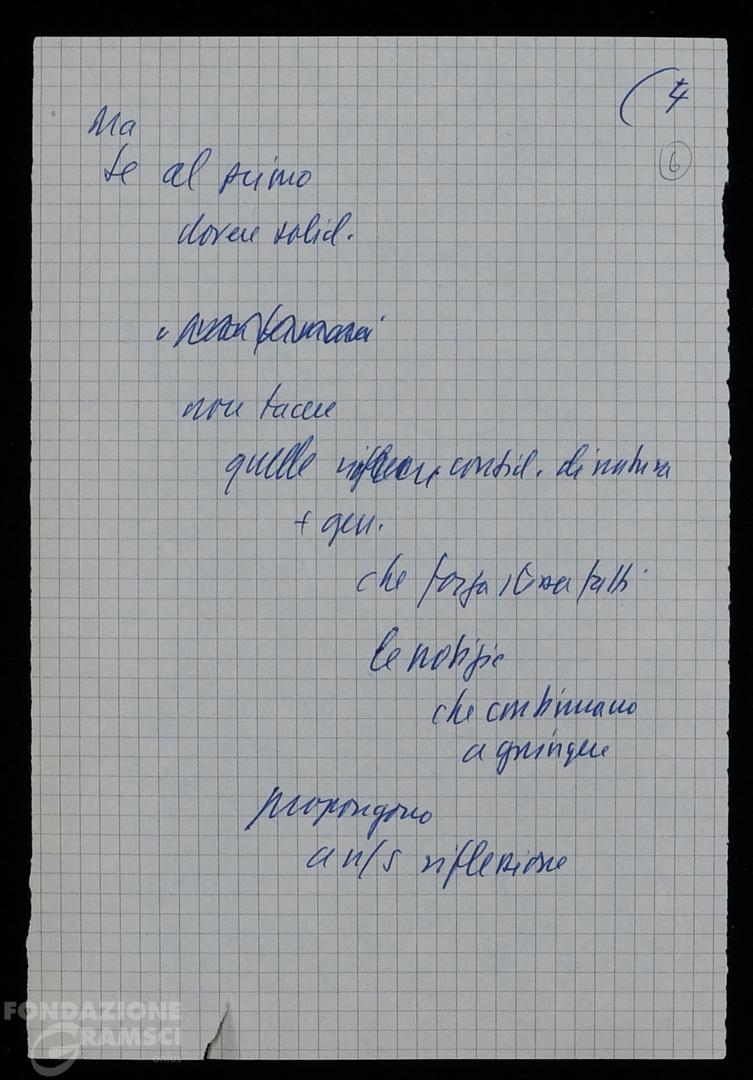 ( 4
6
Ma
se al primo
dovere solid.
non tacere
quelle consid. di natura
+ gen.
che forza stessa fatti
le notizie
che continuano
a giungere
propongono
a n/s riflessione
FONDAZIONE
GRAMSCI
onlus